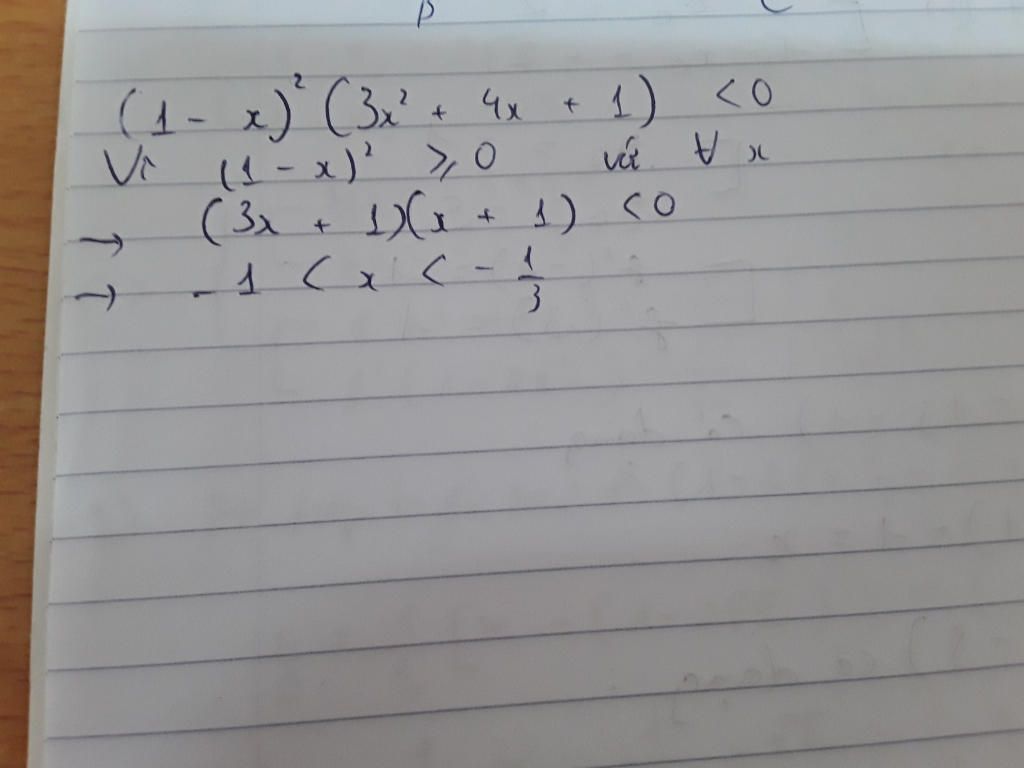 (1 - x)² (3x² + 4x + 1) < 0
Vì (1 - x)² ⩾ 0 với ∀ x
→ (3x + 1)(x + 1) < 0
→ - 1 < x < - 1/3